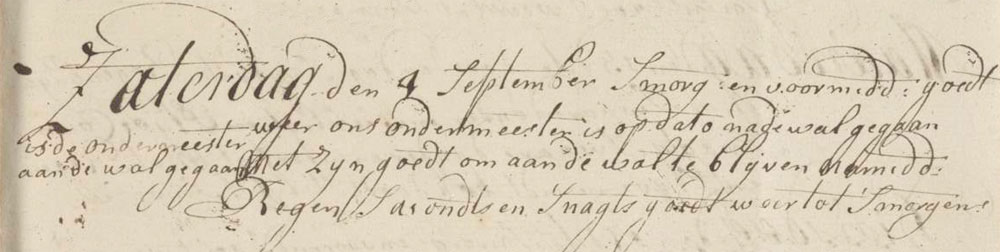 Zaterdag den 4 September Smorg: en voormidd: goedt
weer ons ondermeester is op dato na de wal gegaan
is de ondermeester
aan de wal gegaan
Met Zyn goedt om aan de wal te blyven namidd:
Regen Savondts en Snagts goedt weer tot Smorgens